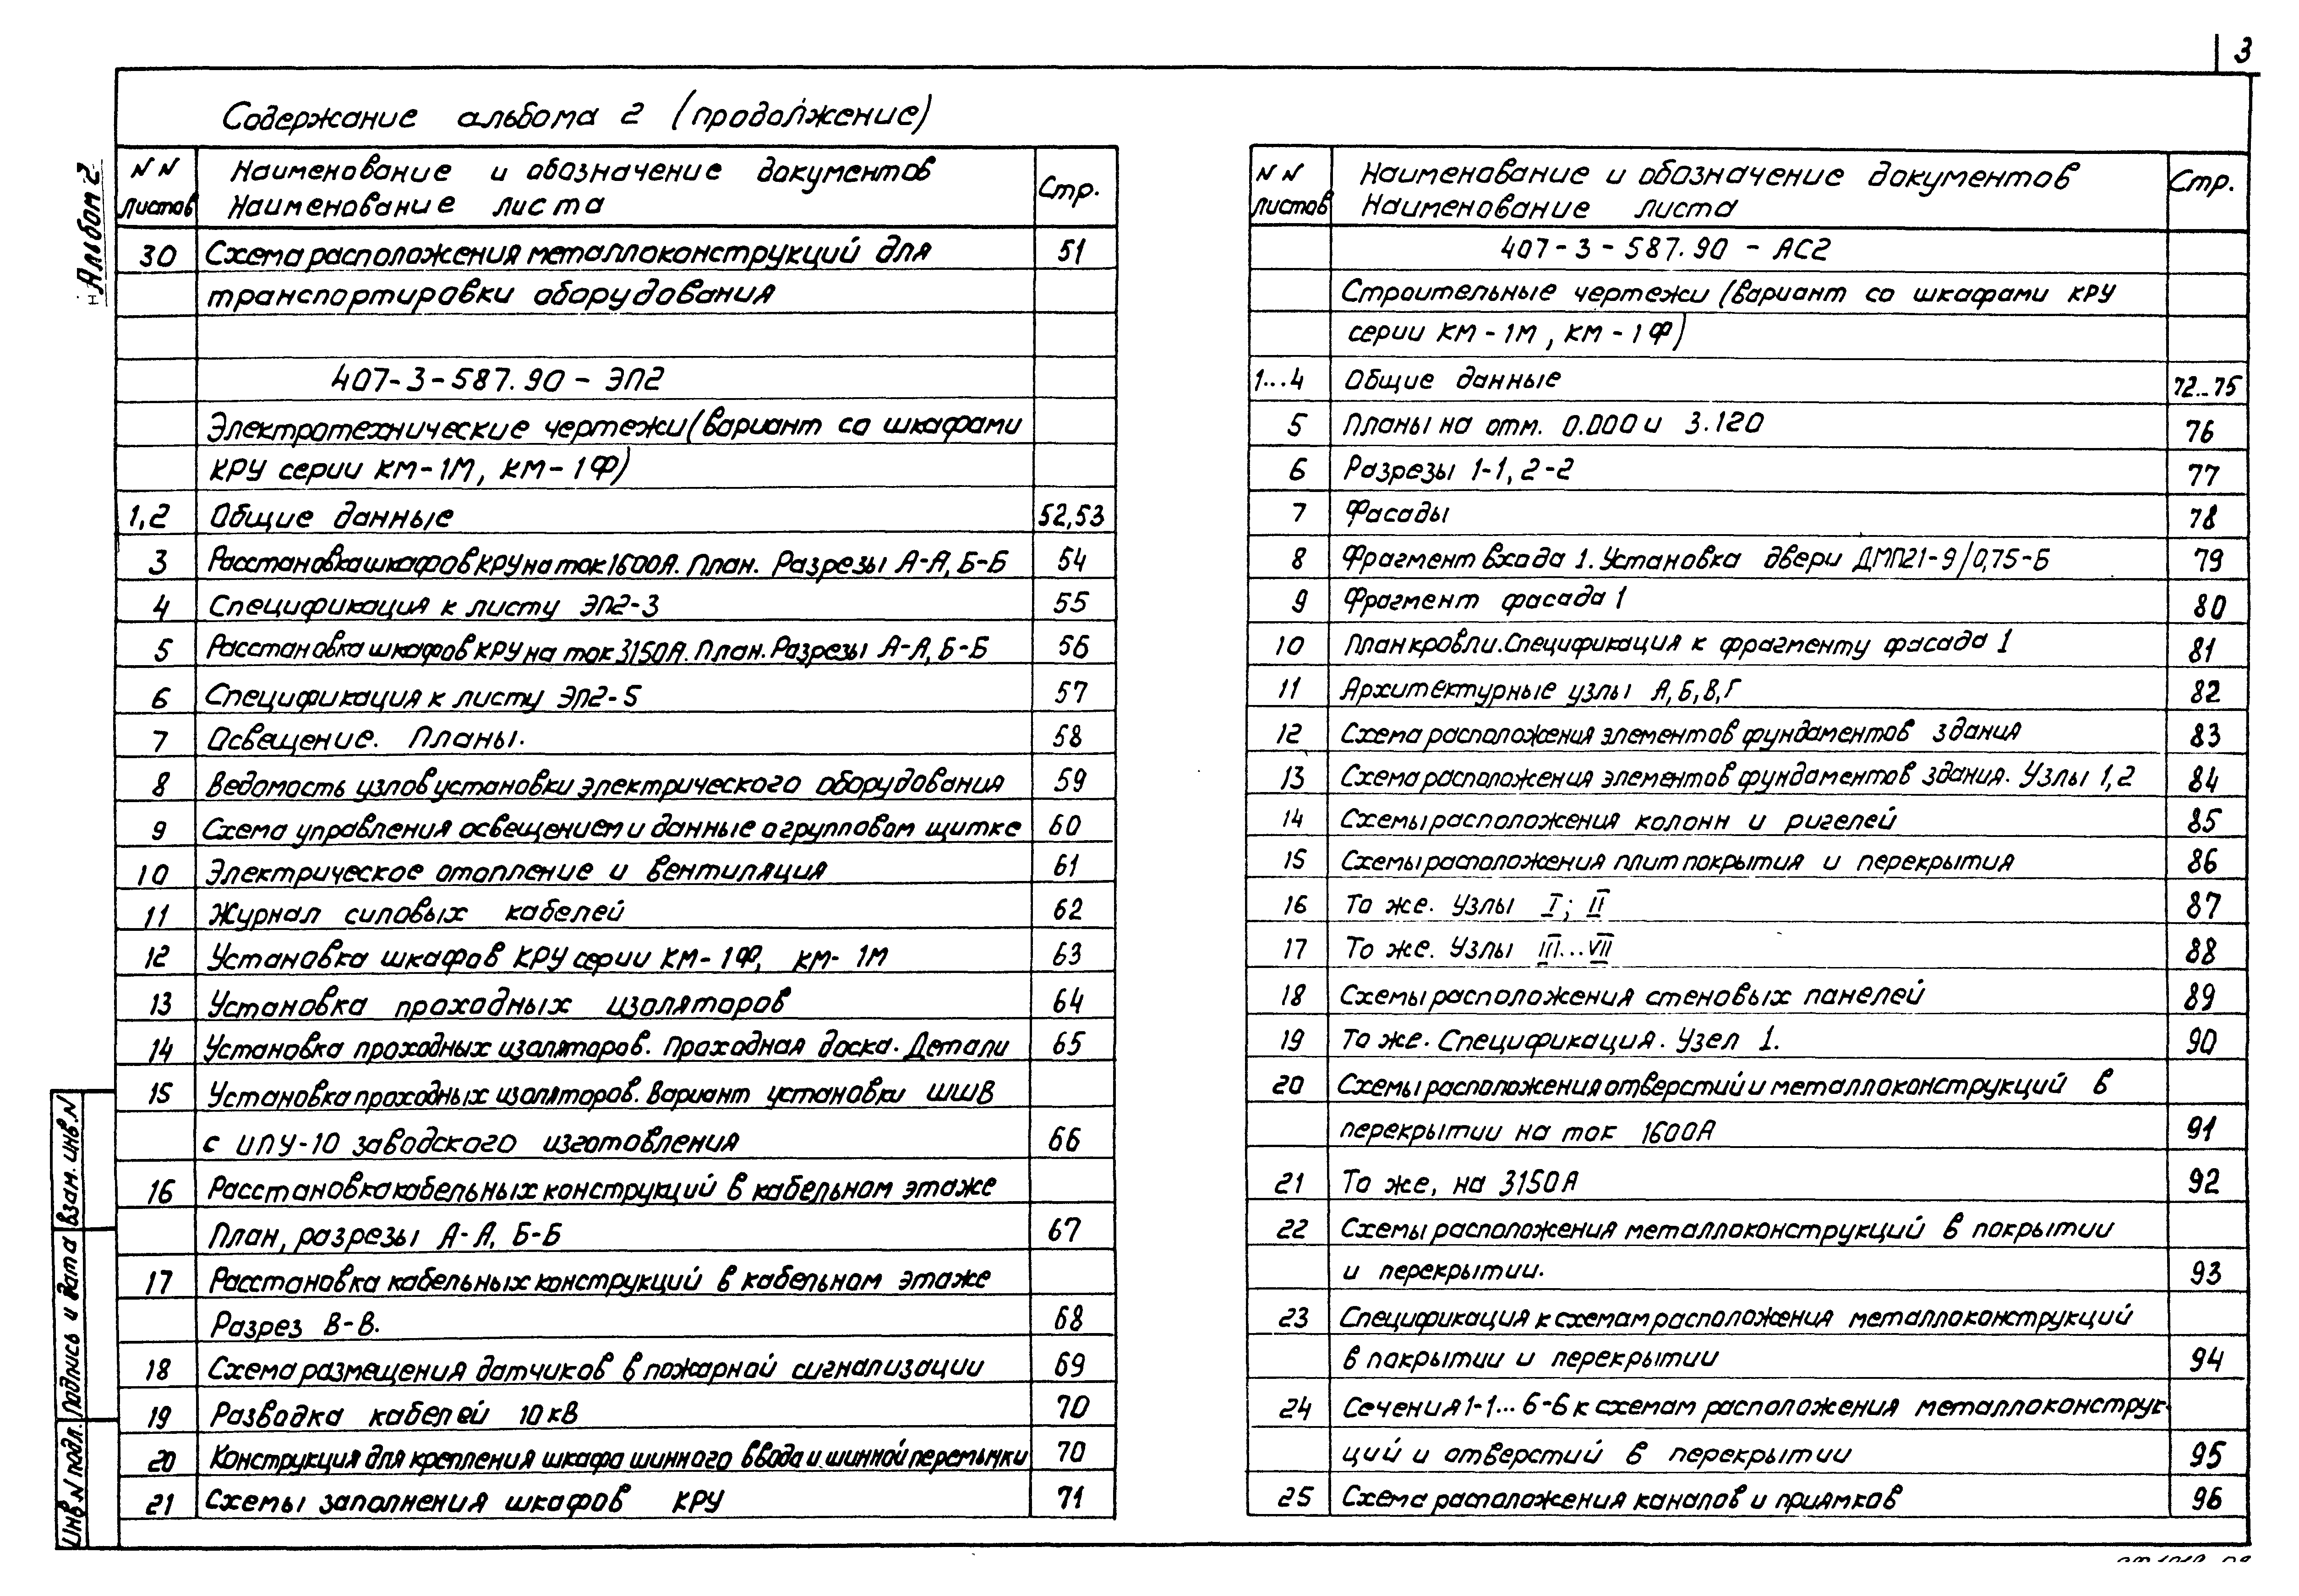 3
Содержание альбома 2 (продолжение)
Альбом 2
N N листов
Наименование и обозначение документов
Наименование листа
Стр.
30 Схема расположения металлоконструкций для 51
транспортировки оборудования
407-3-587.90 - ЭП2
Электротехнические чертежи (вариант со шкафами
КРУ серии КМ-1М, КМ-1Ф)
1,2 Общие данные 52,53
3 Расстановка шкафов КРУ на ток 1600А. План. Разрезы А-А, Б-Б 54
4 Спецификация к листу ЭП2-3 55
5 Расстановка шкафов КРУ на ток 3150А. План. Разрезы А-А, Б-Б 56
6 Спецификация к листу ЭП2-5 57
7 Освещение. Планы. 58
8 Ведомость узлов установки электрического оборудования 59
9 Схема управления освещением и данные о групповом щитке 60
10 Электрическое отопление и вентиляция 61
11 Журнал силовых кабелей 62
12 Установка шкафов КРУ серии КМ-1Ф, КМ-1М 63
13 Установка проходных изоляторов 64
14 Установка проходных изоляторов. Проходная доска. Детали 65
15 Установка проходных изоляторов. Вариант установки ШШВ
с ИПУ-10 заводского изготовления 66
16 Расстановка кабельных конструкций в кабельном этаже
План, разрезы А-А, Б-Б 67
17 Расстановка кабельных конструкций в кабельном этаже
Разрез В-В. 68
18 Схема размещения датчиков в пожарной сигнализации 69
19 Разводка кабелей 10кВ 70
20 Конструкция для крепления шкафа шинного ввода и шинной перемычки 70
21 Схемы заполнения шкафов КРУ 71
N N листов
Наименование и обозначение документов
Наименование листа
Стр.
407-3-587.90 - АС2
Строительные чертежи (вариант со шкафами КРУ
серии КМ-1М, КМ-1Ф)
1...4 Общие данные 72...75
5 Планы на отм. 0.000 и 3.120 76
6 Разрезы 1-1, 2-2 77
7 Фасады 78
8 Фрагмент входа 1. Установка двери ДМП21-9/0,75-Б 79
9 Фрагмент фасада 1 80
10 План кровли. Спецификация к фрагменту фасада 1 81
11 Архитектурные узлы А, Б, В, Г 82
12 Схема расположения элементов фундаментов здания 83
13 Схема расположения элементов фундаментов здания. Узлы 1, 2 84
14 Схемы расположения колонн и ригелей 85
15 Схемы расположения плит покрытия и перекрытия 86
16 То же. Узлы I; II 87
17 То же. Узлы III...VII 88
18 Схемы расположения стеновых панелей 89
19 То же. Спецификация. Узел 1. 90
20 Схемы расположения отверстий и металлоконструкций в
перекрытии на ток 1600А 91
21 То же, на 3150А 92
22 Схемы расположения металлоконструкций в покрытии
и перекрытии. 93
23 Спецификация к схемам расположения металлоконструкций
в покрытии и перекрытии 94
24 Сечения 1-1... 6-6 к схемам расположения металлоконструк-
ций и отверстий в перекрытии 95
25 Схема расположения каналов и приямков 96
Взам. инв. N
Подпись и дата
Инв. N подл.